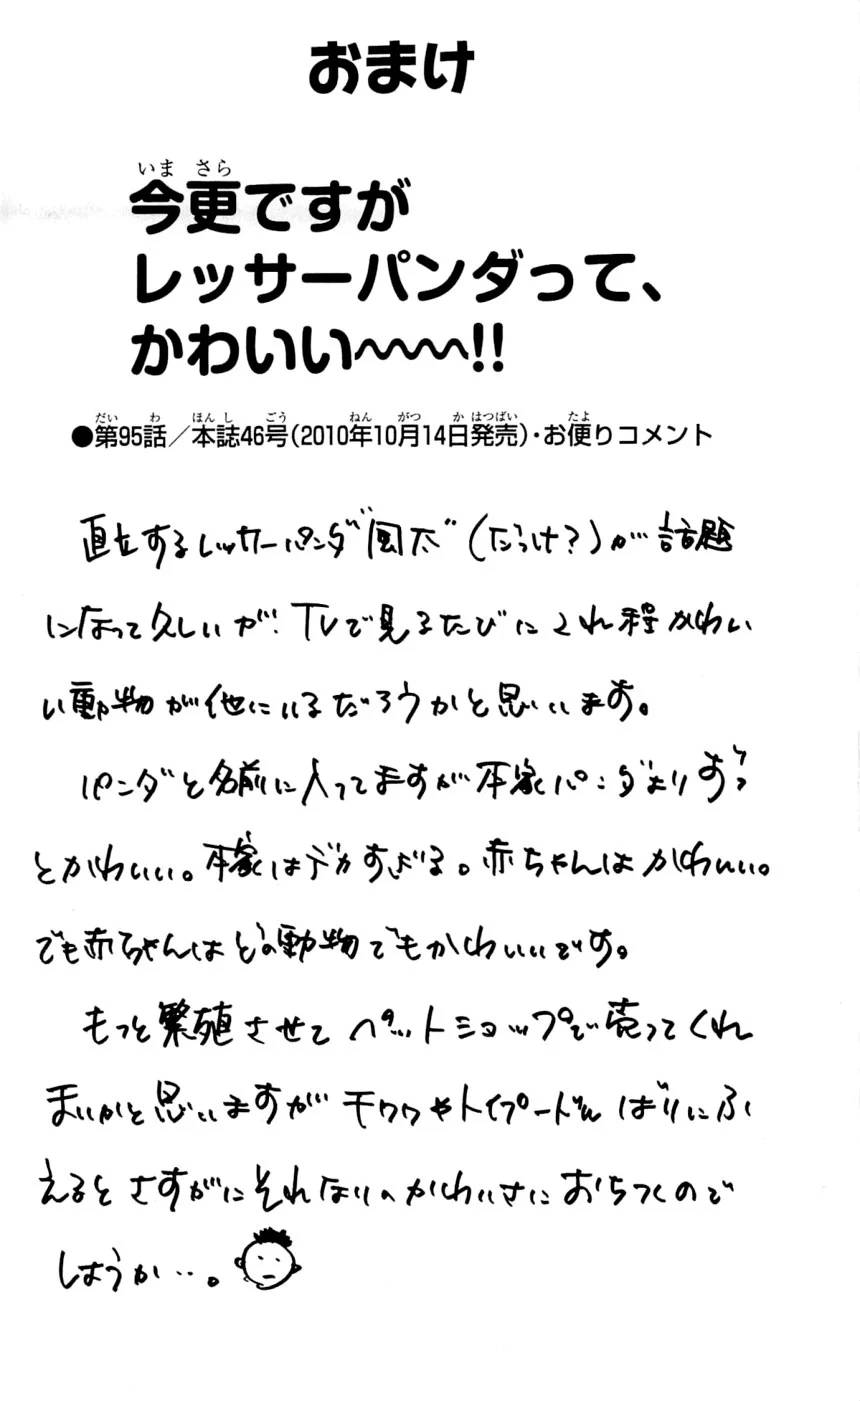 おまけ
いま さら
今更ですが
レッサーパンダって、
かわいい〜〜〜!!
だい わ ほん し ごう ねん がつ か はつばい たよ
●第95話／本誌46号(2010年10月14日発売)・お便りコメント
直立するレッサーパンダ"風太"(だっけ?)が話題
になって久しいが、TVで見るたびにこれ程かわい
い動物が他にいるだろうかと思います。
パンダと名前に入ってますが本家パンダよりずっ
とかわいい。本家はデカすぎる。赤ちゃんはかわいい。
でも赤ちゃんはどの動物でもかわいいです。
もっと繁殖させてペットショップで売ってくれ
まいかと思いますがチワワやトイプードルばりにふ
えるとさすがにそれなりのかわいさにおちつくので
しょうか…。